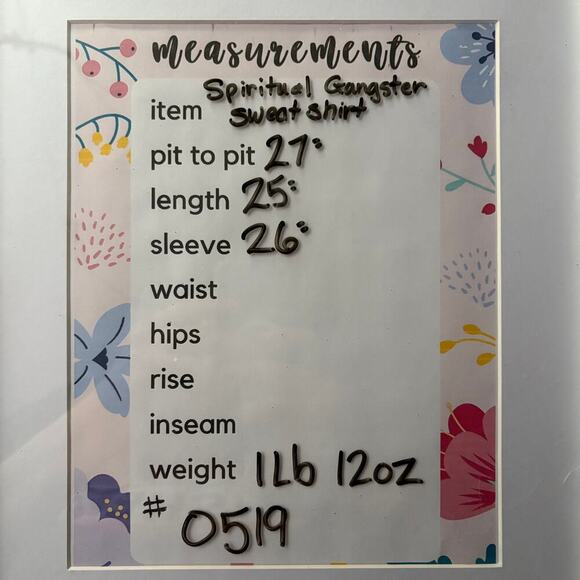 measurements
Spiritual Gangster
item sweatshirt
pit to pit 27"
length 25"
sleeve 26"
waist
hips
rise
inseam
weight 1Lb 12oz
# 0519